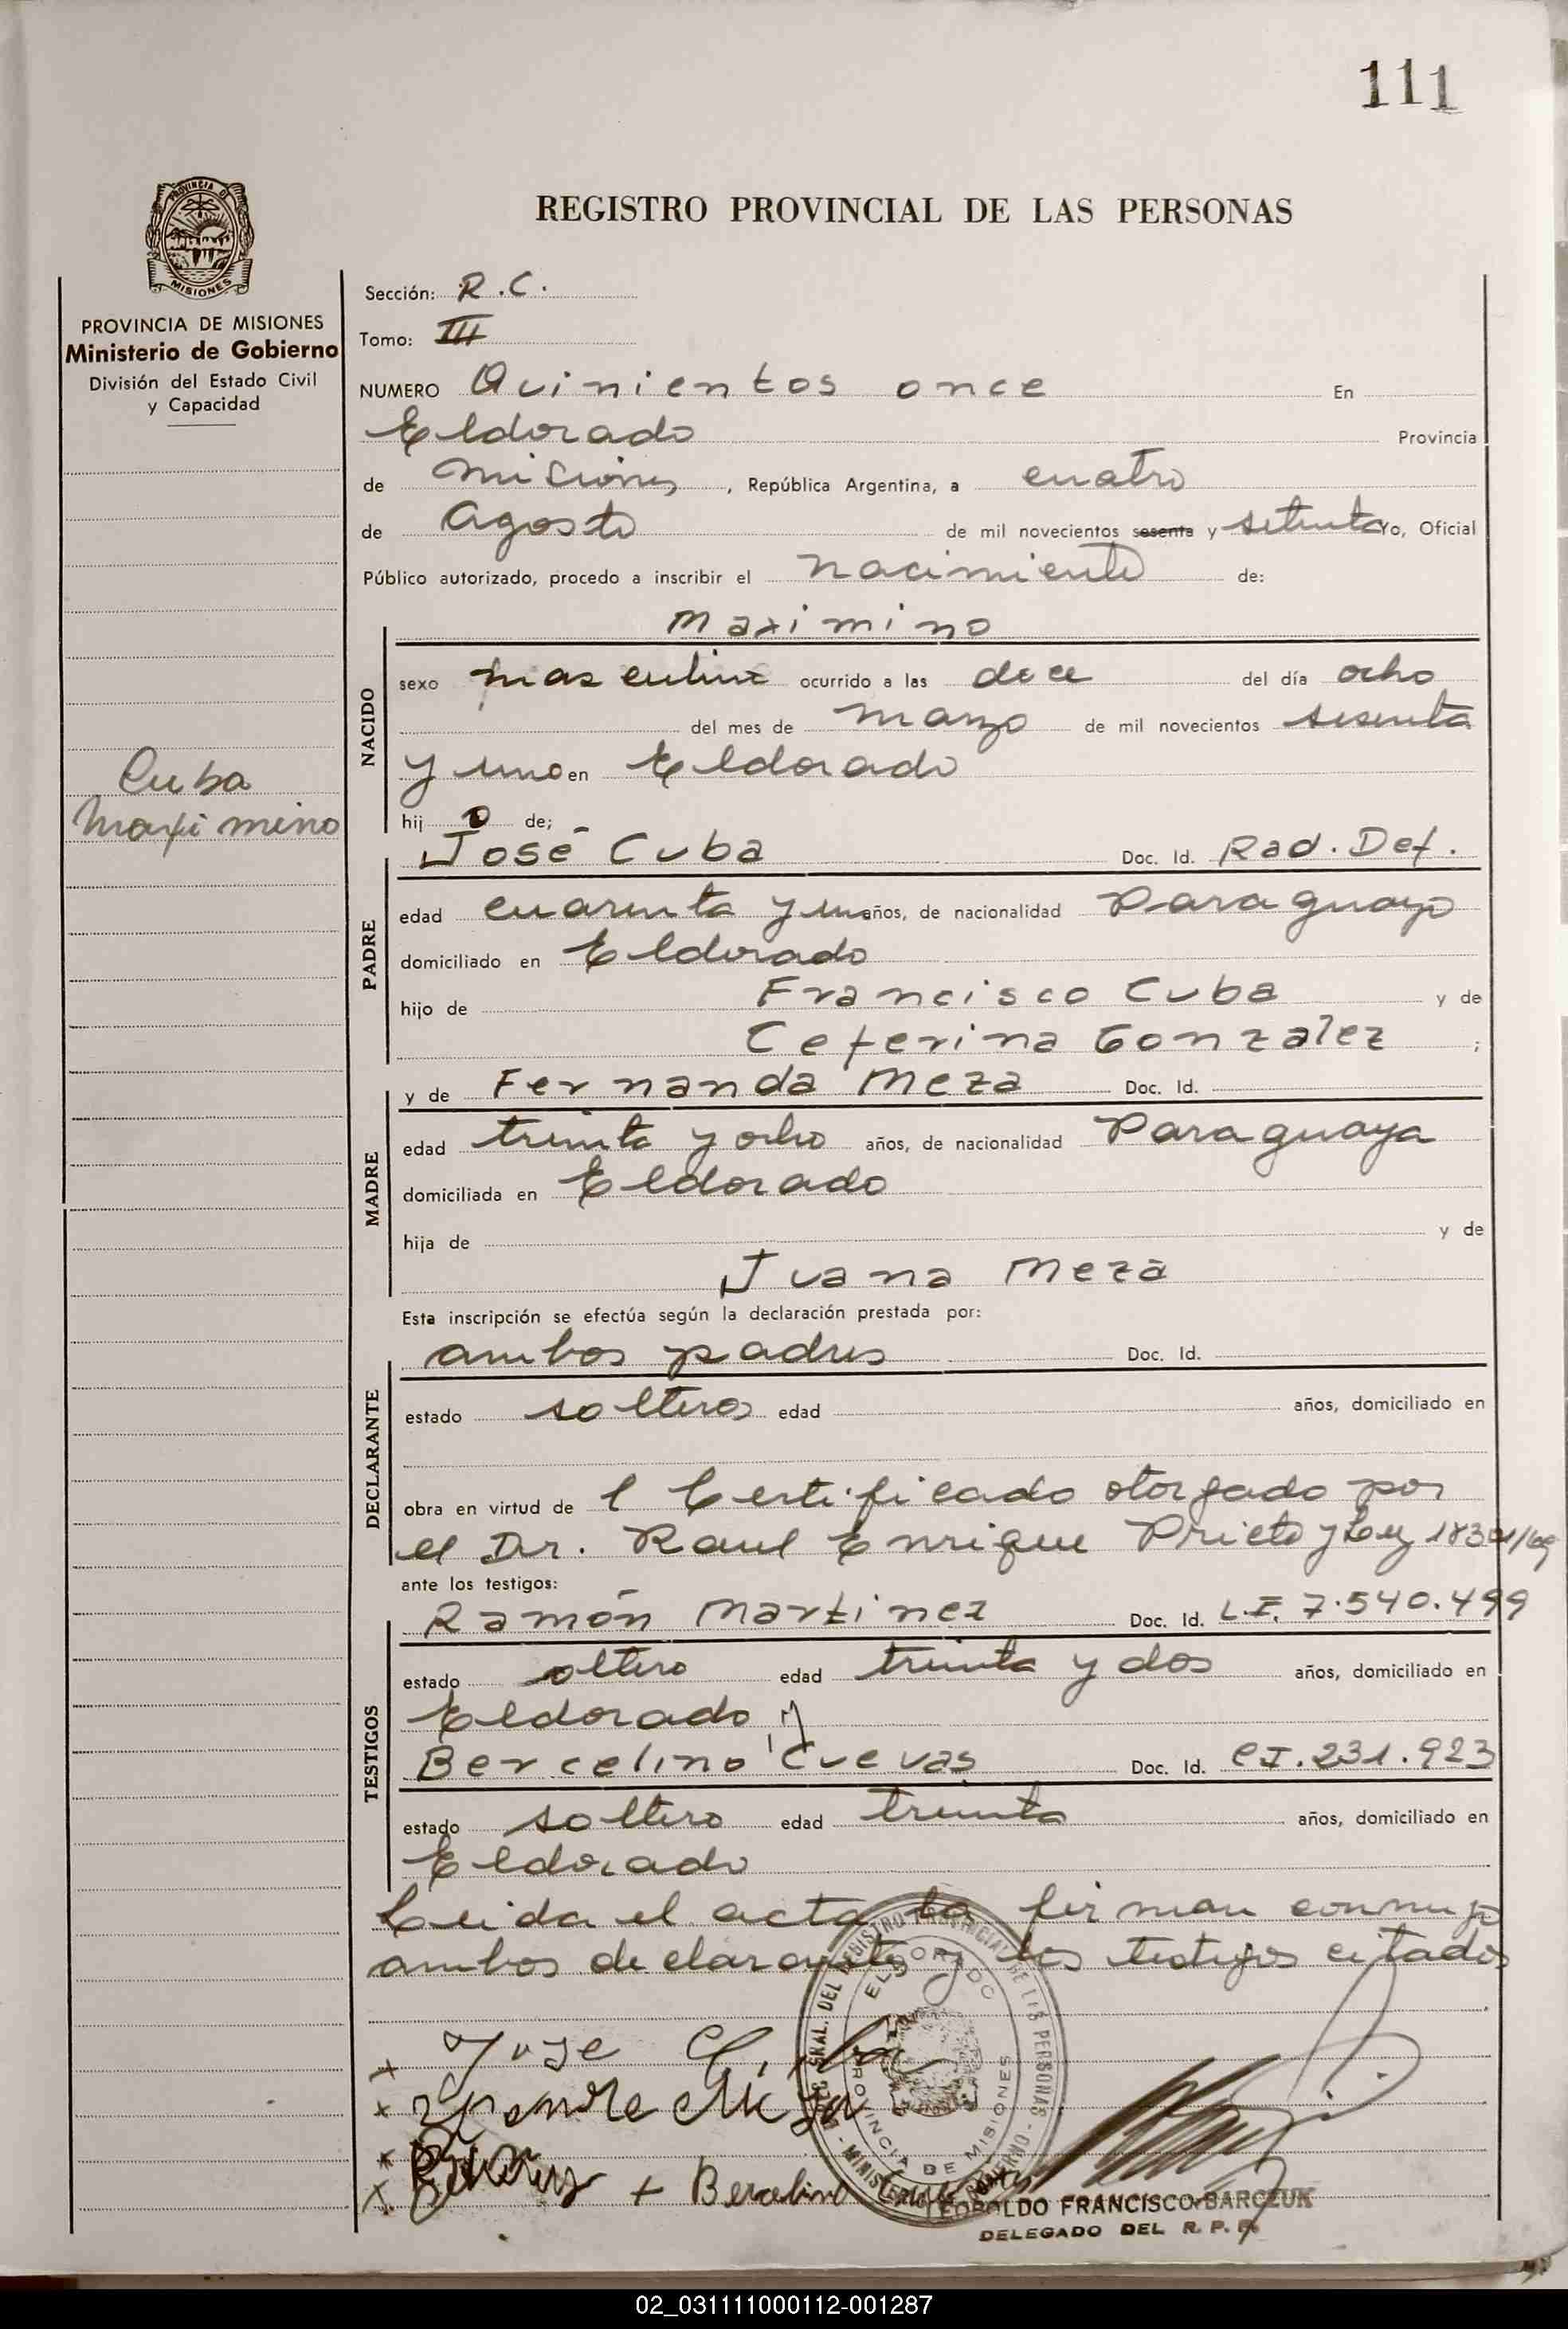 111
REGISTRO PROVINCIAL DE LAS PERSONAS
PROVINCIA DE MISIONES
Ministerio de Gobierno
División del Estado Civil
y Capacidad
Cuba
Maximino
Sección: R.C.
Tomo: III
NUMERO Quinientos once En
Eldorado Provincia
de Misiones, República Argentina, a cuatro
de Agosto de mil novecientos sesenta y setenta Yo, Oficial
Público autorizado, procedo a inscribir el nacimiento de:
Maximino
NACIDO
sexo masculino ocurrido a las doce del día ocho
del mes de marzo de mil novecientos sesenta
y uno en Eldorado
hijo de;
José Cuba Doc. Id. Rad. Def.
PADRE
edad cuarenta y un años, de nacionalidad Paraguayo
domiciliado en Eldorado
hijo de Francisco Cuba y de
Ceferina Gonzalez ;
y de Fernanda Meza Doc. Id.
MADRE
edad treinta y ocho años, de nacionalidad Paraguaya
domiciliada en Eldorado
hija de y de
Juana Meza
Esta inscripción se efectúa según la declaración prestada por:
ambos padres Doc. Id.
DECLARANTE
estado solteros edad años, domiciliado en
obra en virtud de l Certificado otorgado por
el Dr. Raul Enrique Prieto y Ley
ante los testigos:
Ramón Martinez Doc. Id. L.E. 7.540.499
TESTIGOS
estado oltero edad treinta y dos años, domiciliado en
Eldorado y
Bercelino Cuevas Doc. Id. CI. 231.923
estado soltero edad treinta años, domiciliado en
Eldorado
Leida el acta la firman conmigo
ambos declarantes y los testigos citados
x Jose Cuba
x
x
x + Bercelino
ELDORADO
PROVINCIA DE MISIONES
LEOPOLDO FRANCISCO BARCZUK
DELEGADO DEL R. P. P.
02_031111000112-001287